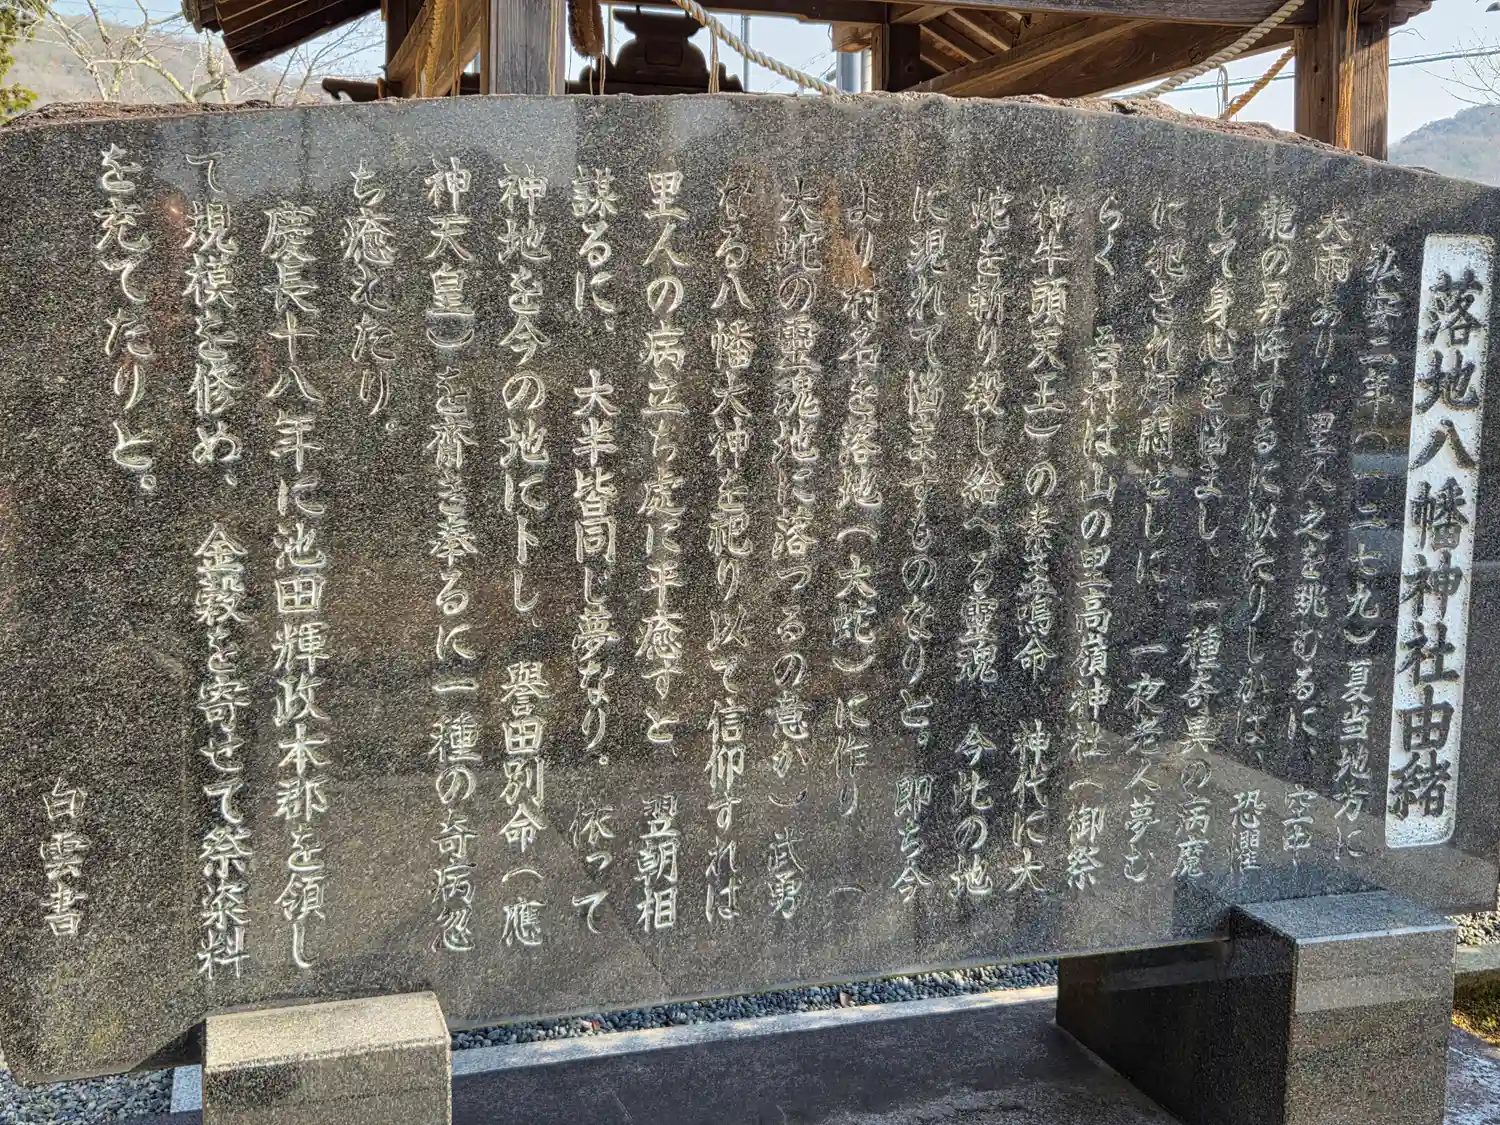 落地八幡神社由緒
弘安二年(一二七九)夏当地方に
大雨あり。里人之を眺むるに、空中
龍の昇降するに似たりしかば、恐懼
して身心を悩まし、一種奇異の病魔
に犯され煩悶せしに、一夜老人夢む
らく、吾村は山の里高嶺神社(御祭
神牛頭天王)の素盞鳴命、神代に大
蛇を斬り殺し給へる靈魂 今此の地
に現れて悩ますものなりと。即ち今
より村名を落地(大蛇)に作り、(
大蛇の靈魂地に落つるの意か)武勇
なる八幡大神を祀り以て信仰すれば
里人の病立ち處に平癒すと、翌朝相
謀るに、大半皆同じ夢なり。依って
神地を今の地に卜し、譽田別命(應
神天皇)を齋き奉るに一種の奇病忽
ち癒えたり。
慶長十八年に池田輝政本郡を領し
て規模を修め、金穀を寄せて祭染料
を充てたりと。
白雲書